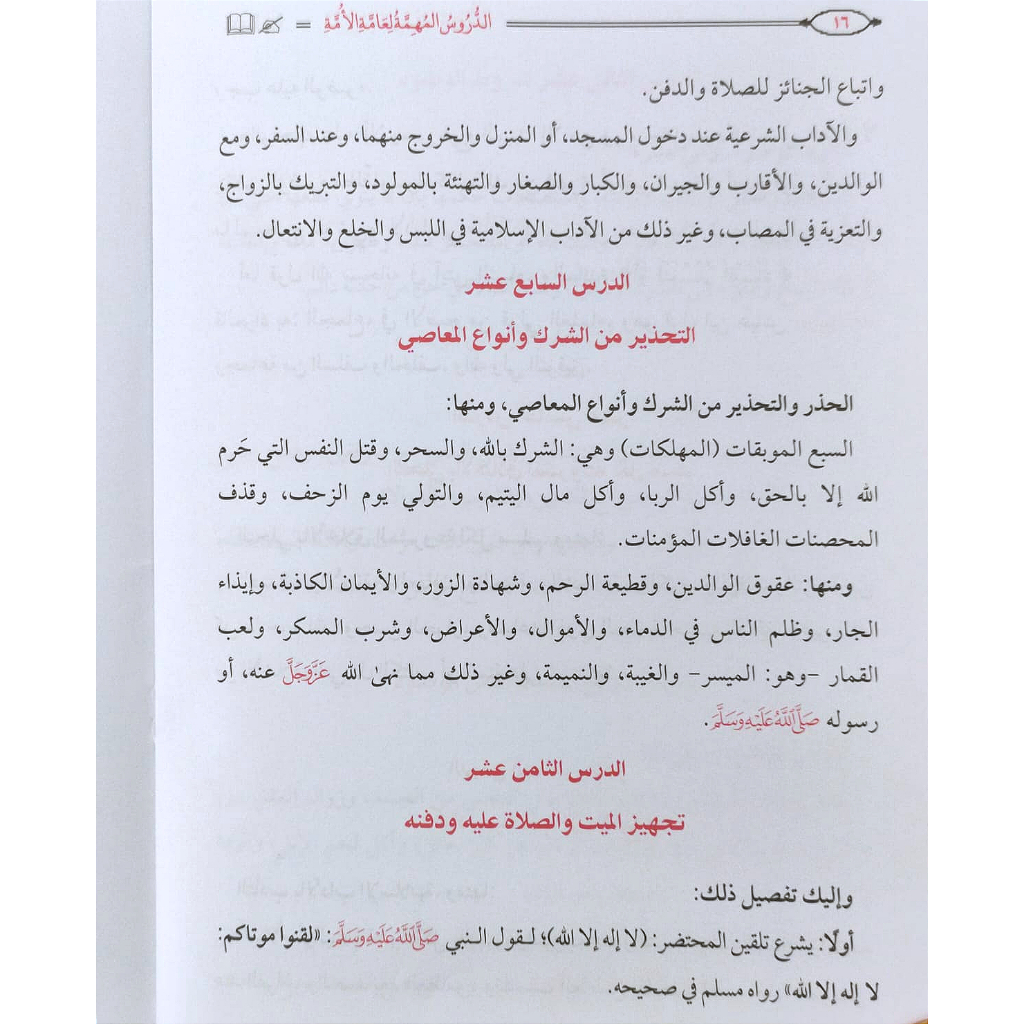 ١٦ الدُّرُوسُ المُهِمَّةُ لِعَامَّةِ الأُمَّةِ
واتباع الجنائز للصلاة والدفن.
والآداب الشرعية عند دخول المسجد، أو المنزل والخروج منهما، وعند السفر، ومع
الوالدين، والأقارب والجيران، والكبار والصغار والتهنئة بالمولود، والتبريك بالزواج،
والتعزية في المصاب، وغير ذلك من الآداب الإسلامية في اللبس والخلع والانتعال.
الدرس السابع عشر
التحذير من الشرك وأنواع المعاصي
الحذر والتحذير من الشرك وأنواع المعاصي، ومنها:
السبع الموبقات (المهلكات) وهي: الشرك بالله، والسحر، وقتل النفس التي حَرم
الله إلا بالحق، وأكل الربا، وأكل مال اليتيم، والتولي يوم الزحف، وقذف
المحصنات الغافلات المؤمنات.
ومنها: عقوق الوالدين، وقطيعة الرحم، وشهادة الزور، والأيمان الكاذبة، وإيذاء
الجار، وظلم الناس في الدماء، والأموال، والأعراض، وشرب المسكر، ولعب
القمار -وهو: الميسر- والغيبة، والنميمة، وغير ذلك مما نهىٰ الله عَزَّوَجَلَّ عنه، أو
رسوله صَلَّى اللَّهُ عَلَيْهِ وَسَلَّمَ.
الدرس الثامن عشر
تجهيز الميت والصلاة عليه ودفنه
وإليك تفصيل ذلك:
أولًا: يشرع تلقين المحتضر: (لا إله إلا الله)؛ لقول النبي صَلَّى اللَّهُ عَلَيْهِ وَسَلَّمَ: «لقنوا موتاكم:
لا إله إلا الله» رواه مسلم في صحيحه.